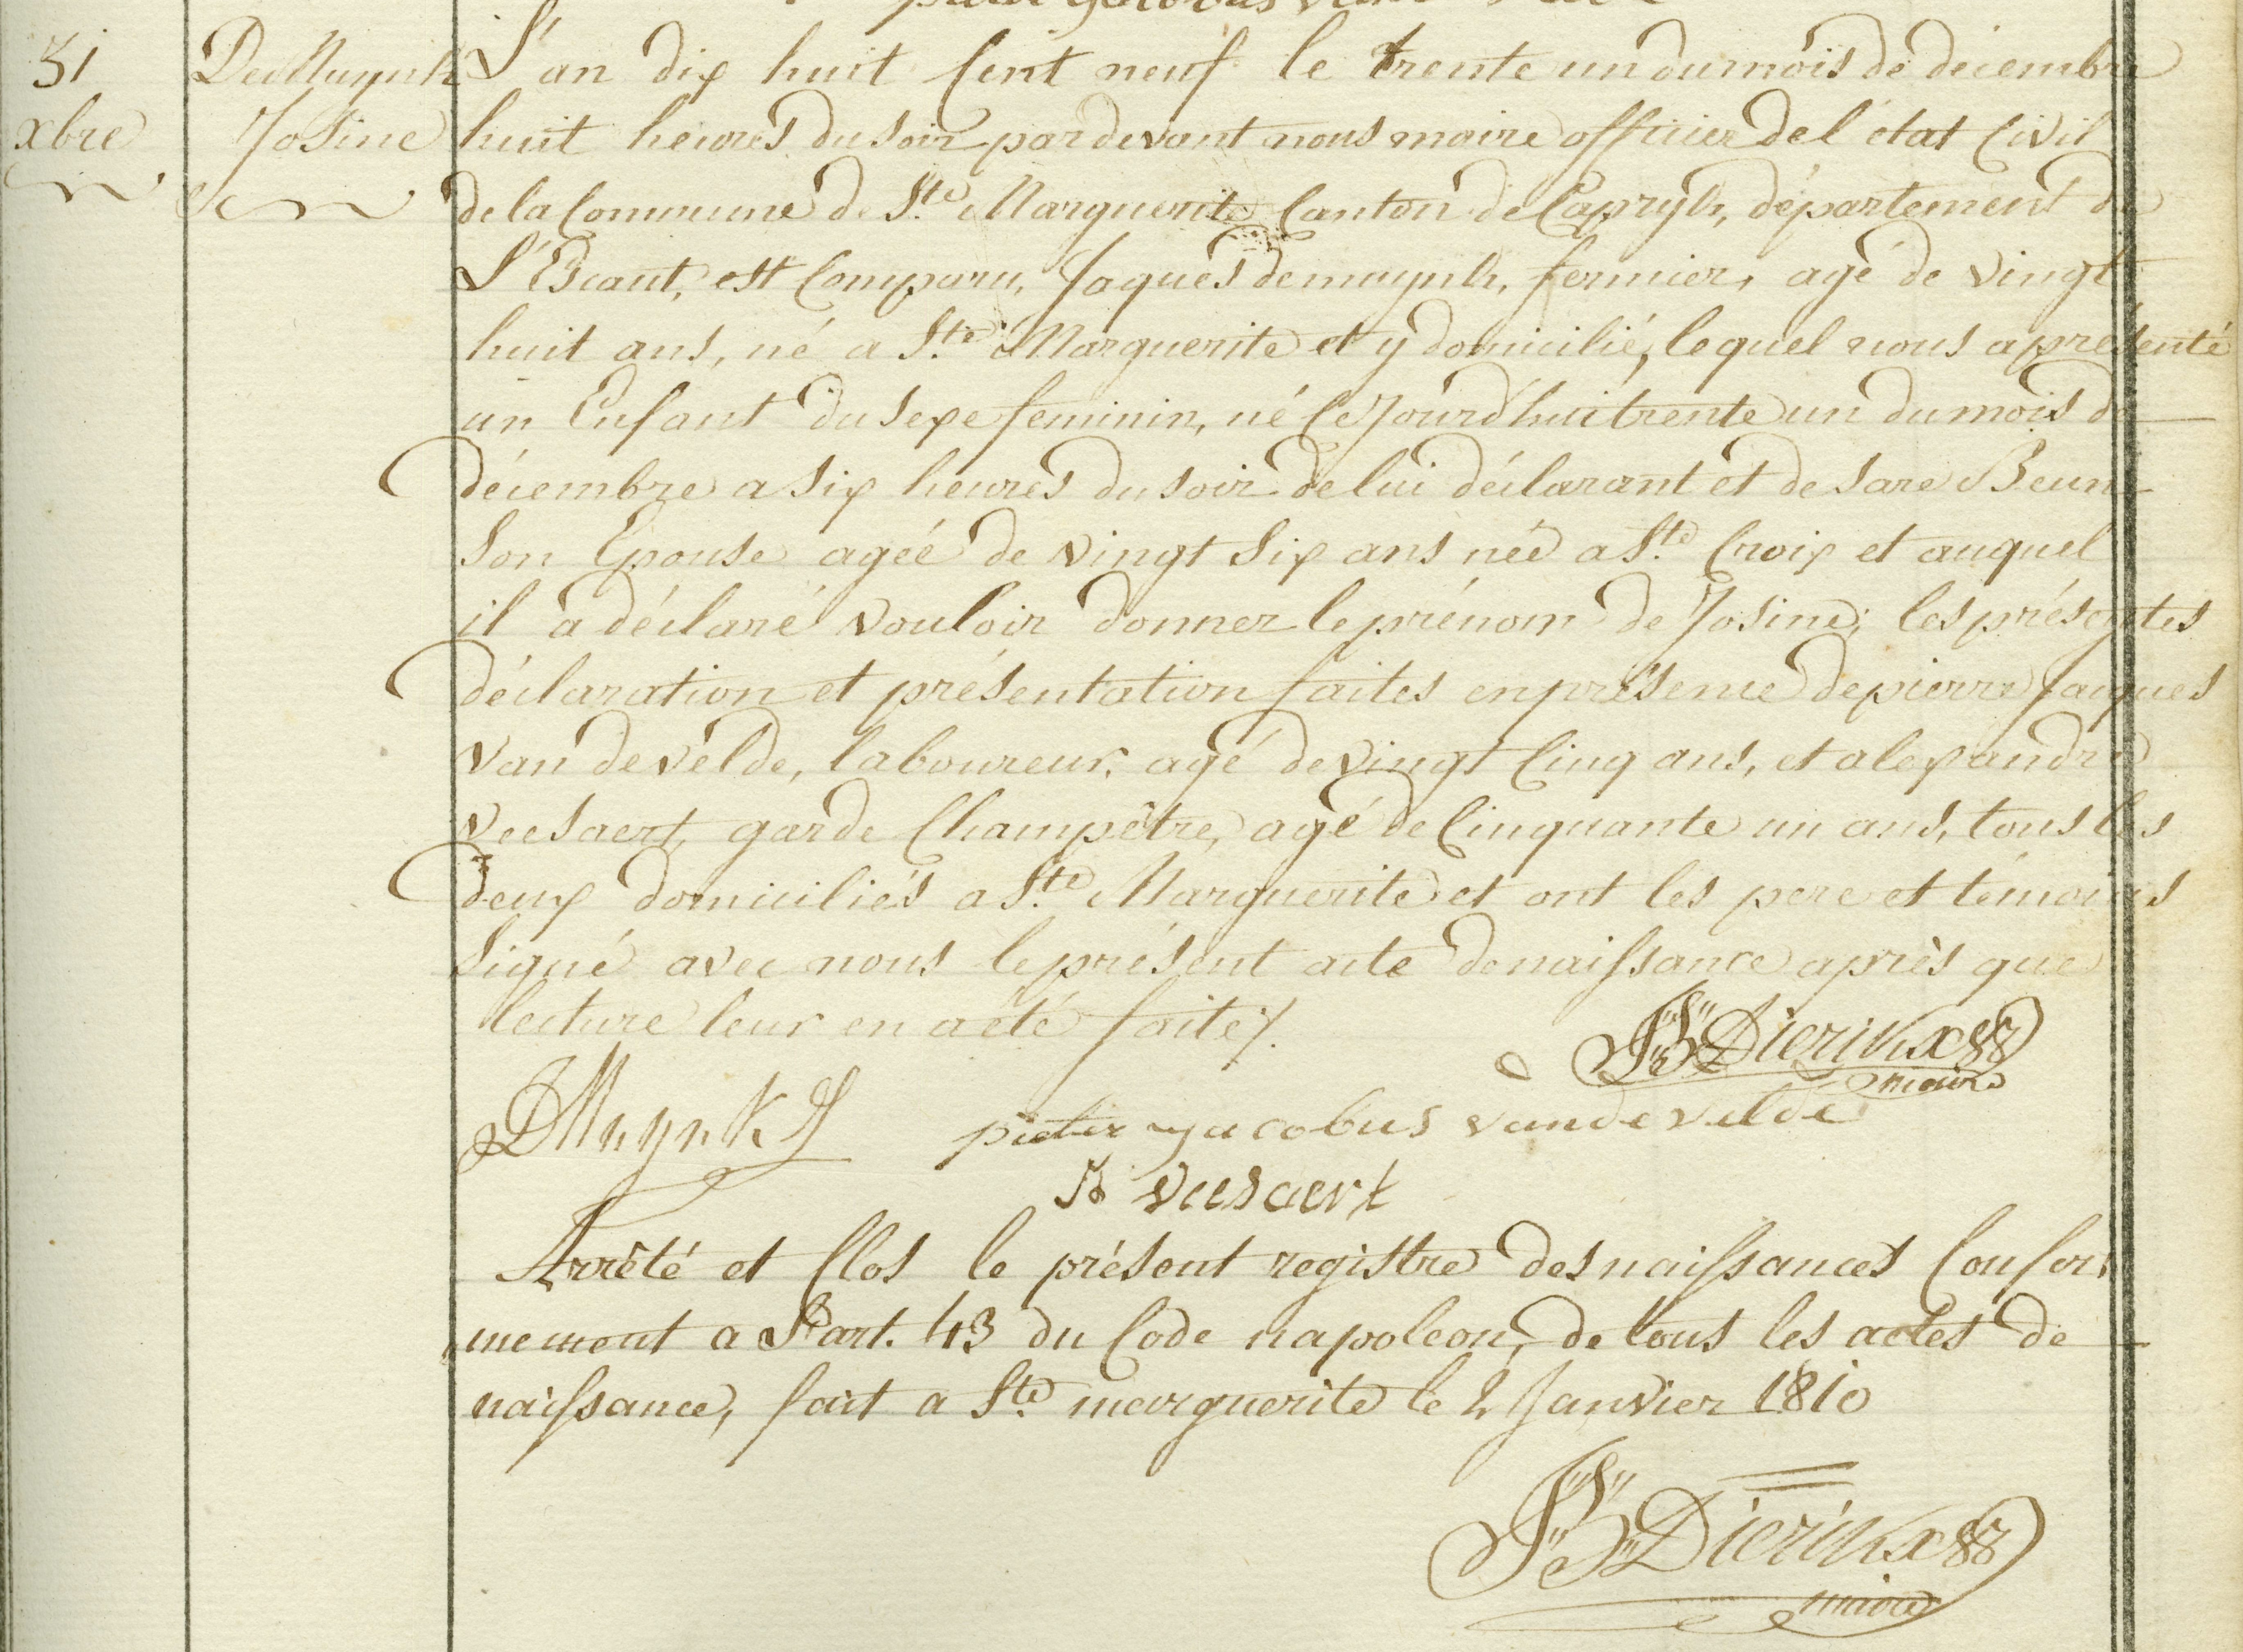 31
xbre
De Muynk
Josine
L'an dix huit Cent neuf le trente un du mois de decembre
huit heures du soir par devant nous maire officier de l'état Civil
de la Commune de Ste Marguerite Canton de Capryk, département de
L'Escaut, est Comparu, Jaques demuynk, fermier, agé de vingt
huit ans, né a Ste Marguerite et y domicilié, lequel nous a présenté
un Enfant du sexe feminin, né Cejourd'hui trente un du mois de
décembre a six heures du soir de lui déclarant et de Sare Beun
Son Epouse ageé de vingt Six ans née a Ste Croix et auquel
il a déclaré vouloir donner le prénom de Josine; les présentes
déclaration et présentation faites en présence de pierre Jaques
van de velde, laboureur, agé de vingt Cinq ans, et alexandre
veesaert, garde Champêtre, agé de Cinquante un ans, tous les
deux domiciliés a Ste Marguerite et ont les pere et témoins
Signé avec nous le présent acte de naissance après que
lecture leur en a été faite /.
JB Dierikx
maire
DMuynk J
pieter yacobus vande velde
veesaert
Arrêté et Clos le présent registre des naissances Confor
mement a L'art. 43 du Code napoleon, de tous les actes de
naissance, fait a Ste marguerite le 2 Janvier 1810
JB Dierikx
maire